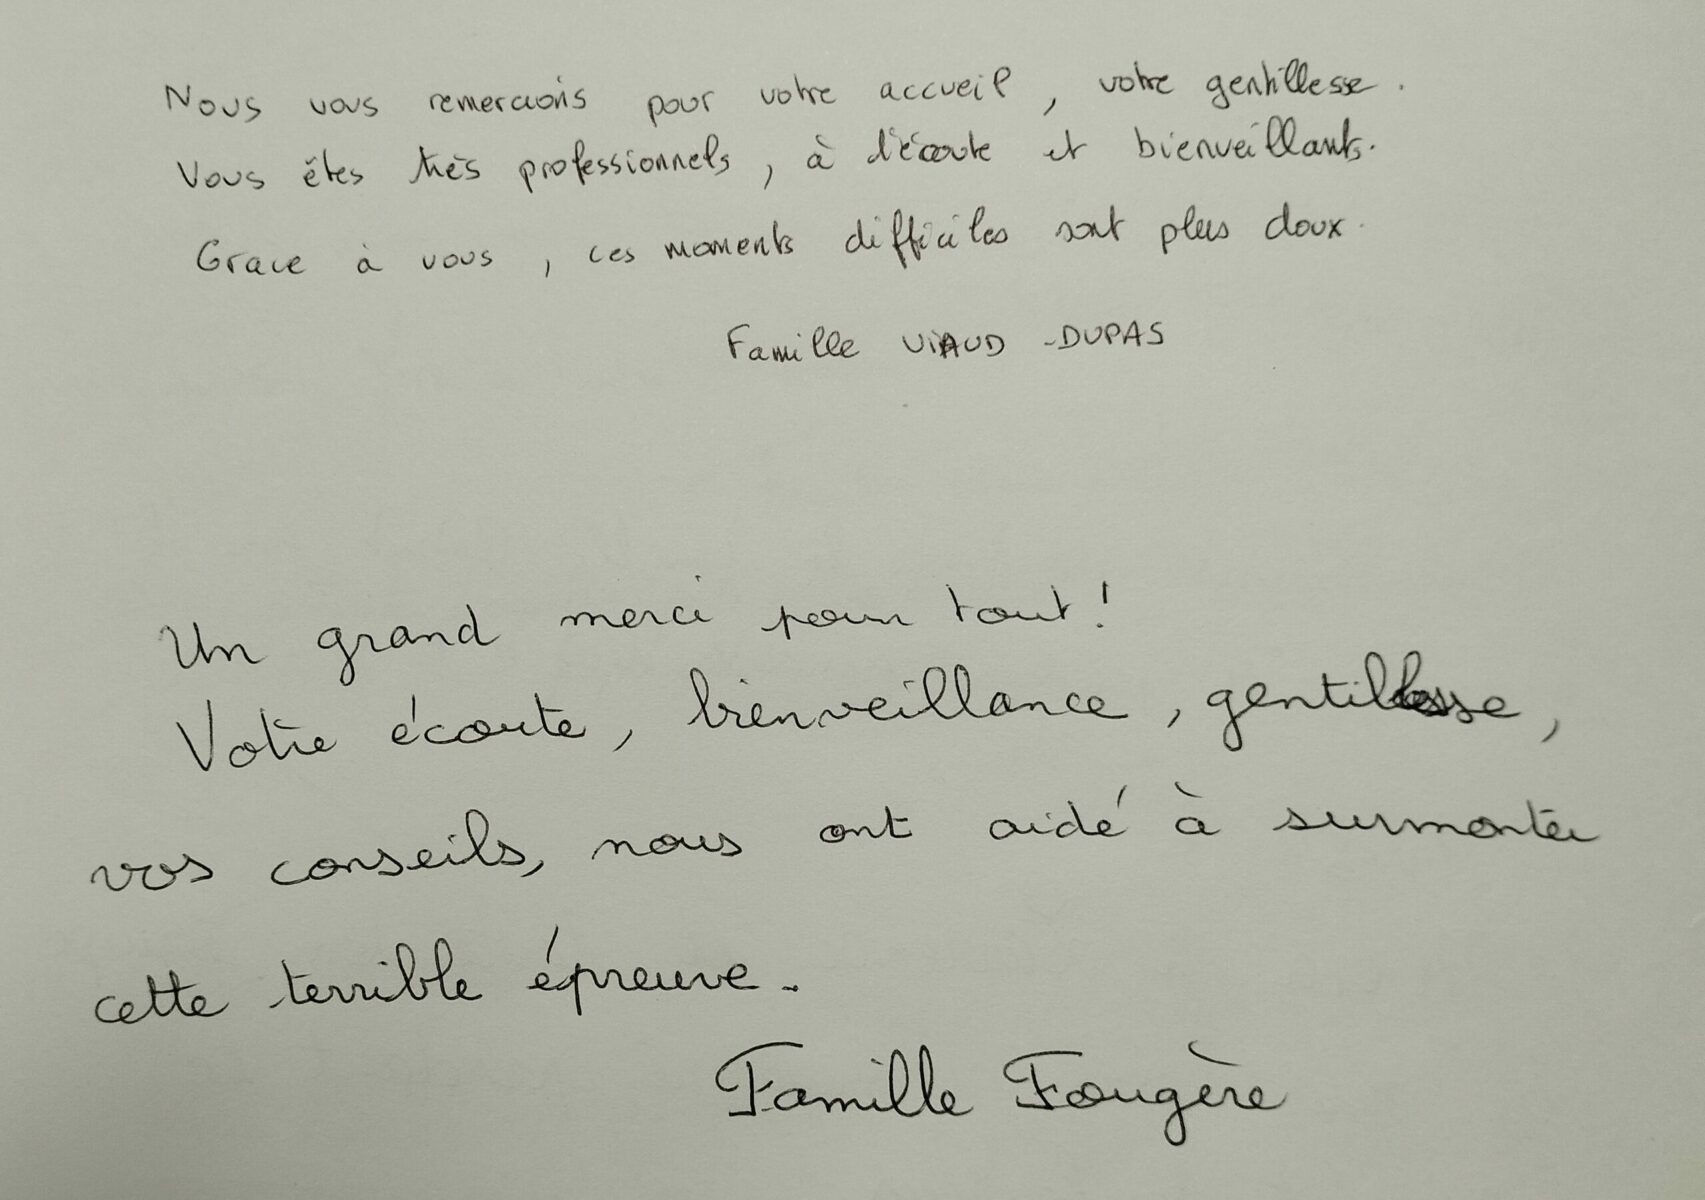 Nous vous remercions pour votre accueil, votre gentillesse.
Vous êtes très professionnels, à l'écoute et bienveillants.
Grace à vous, ces moments difficiles sont plus doux.
Famille VIAUD-DUPAS
Un grand merci pour tout !
Votre écoute, bienveillance, gentillesse,
vos conseils, nous ont aidé à surmonter
cette terrible épreuve.
Famille Fougère